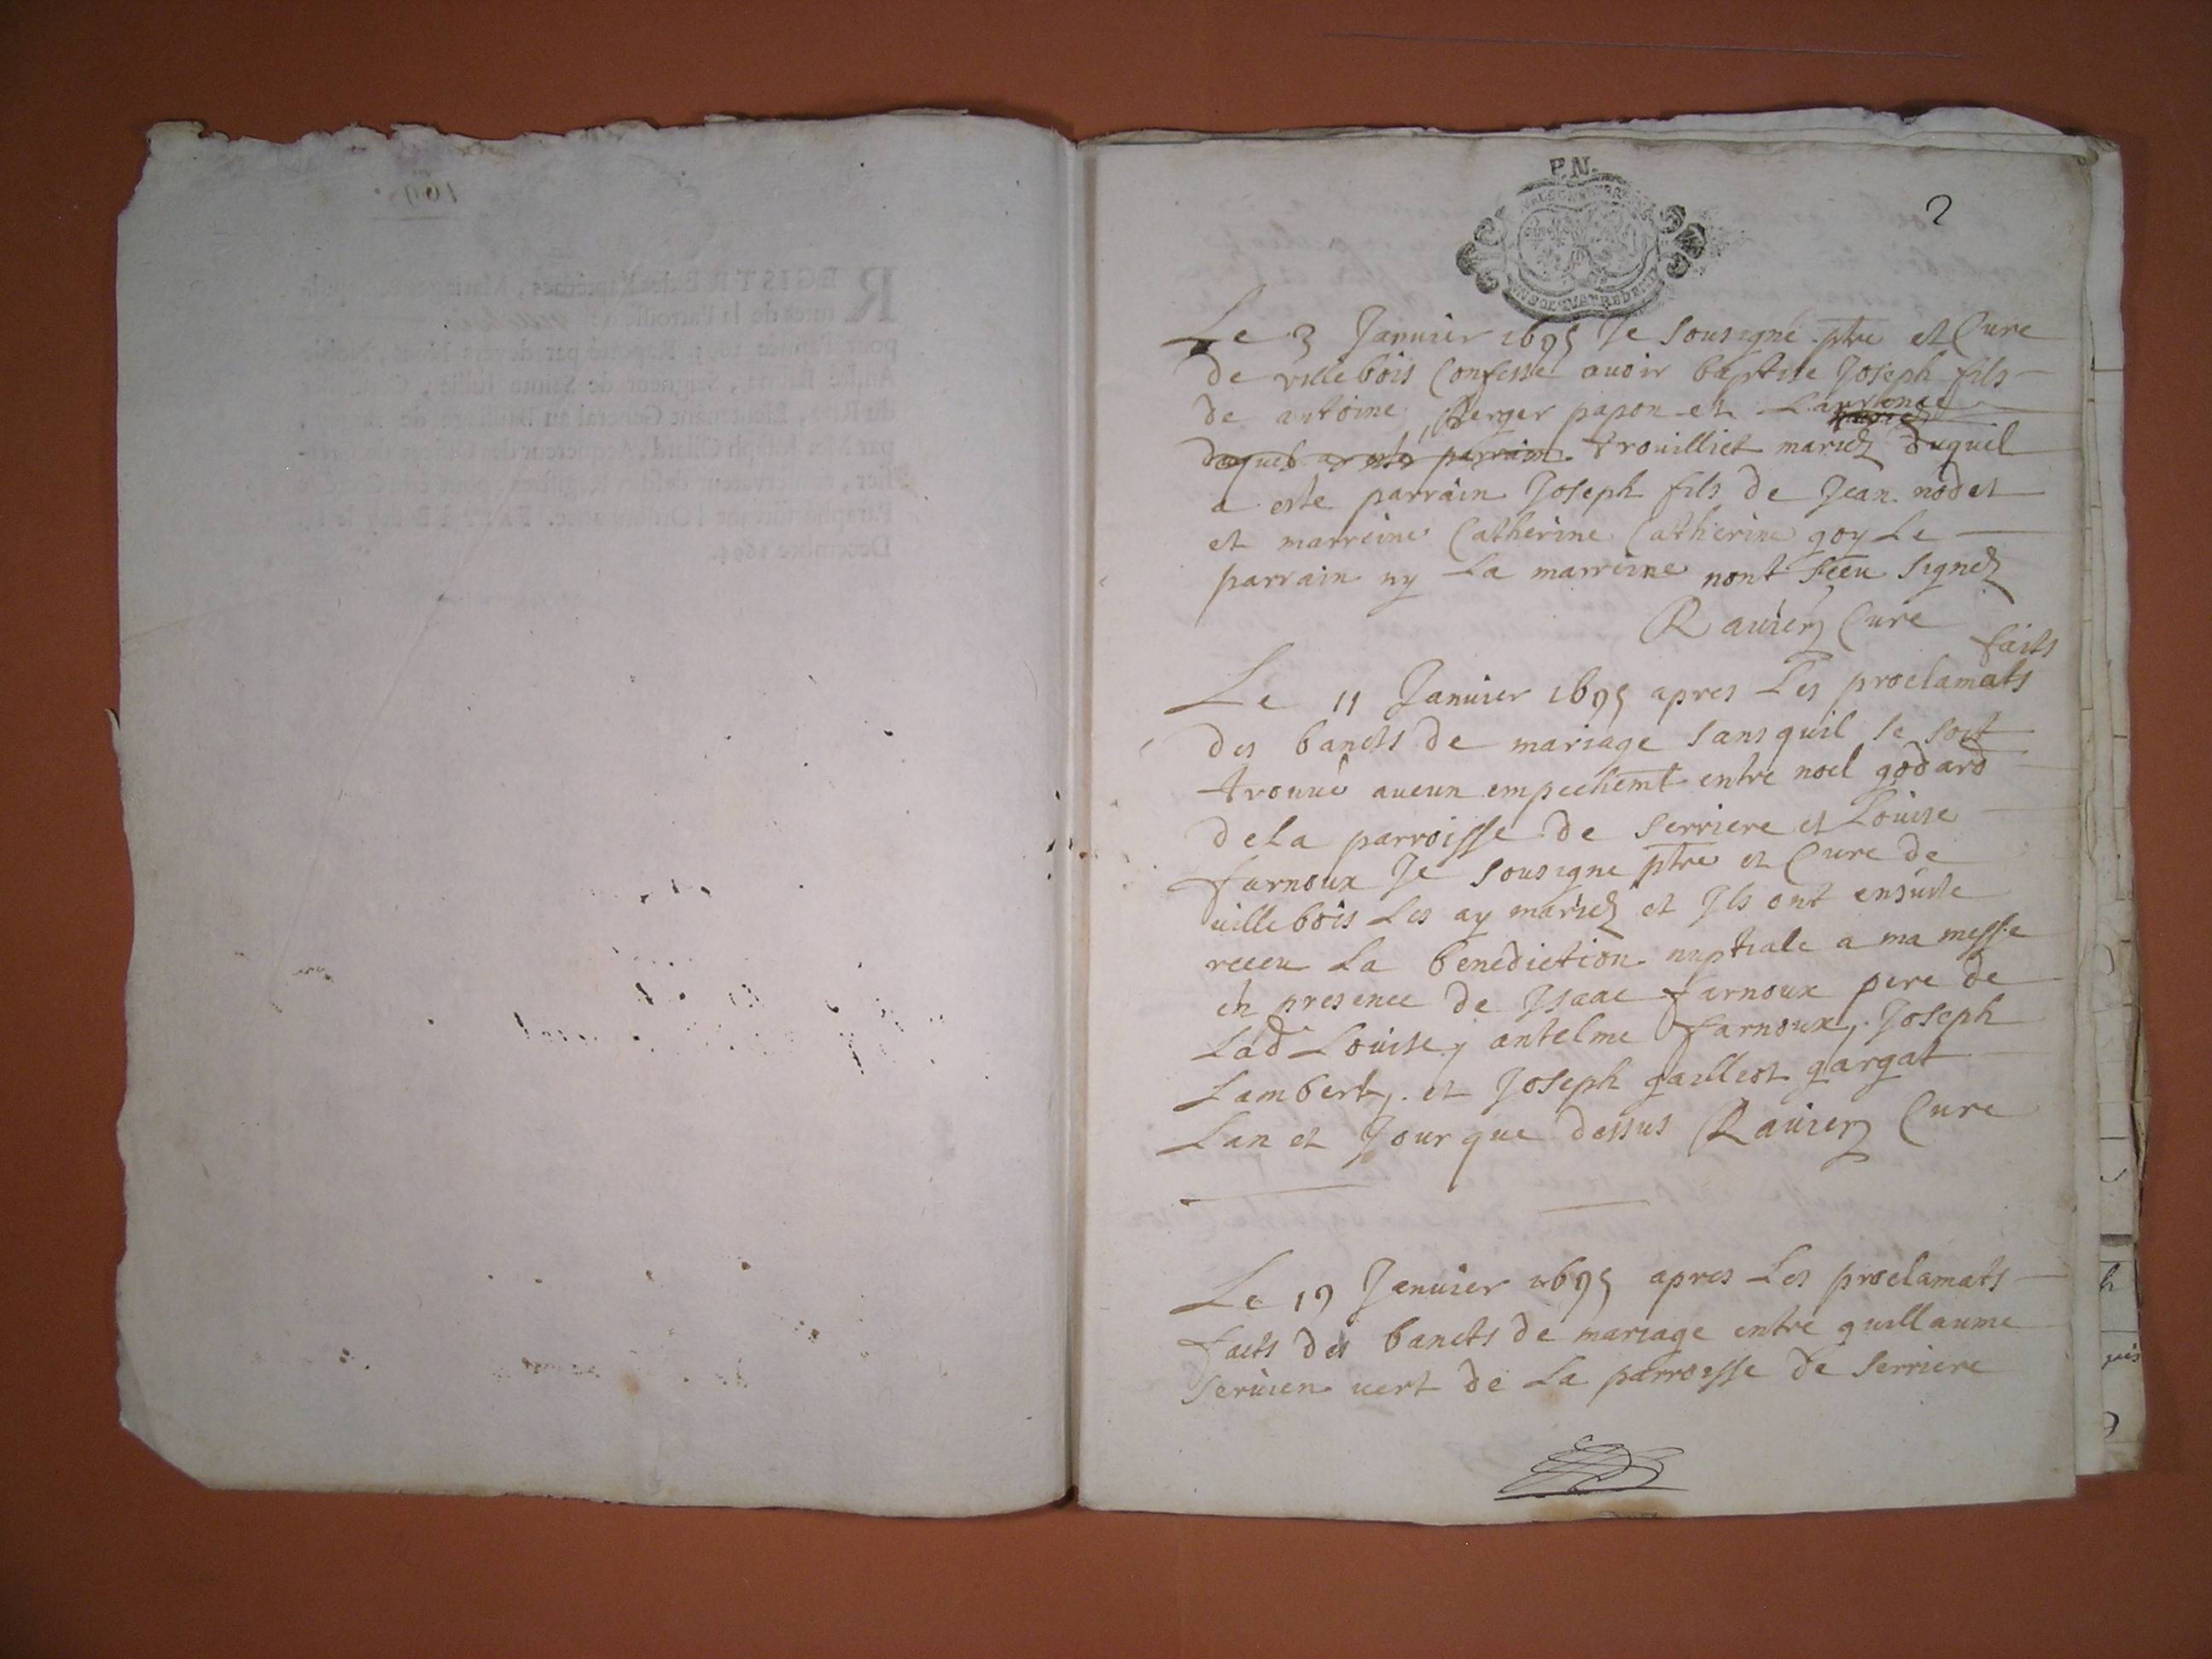 P.N.
2
Le 3 Januier 1695 Je sousigné ptre et Cure
de villebois Confesse auoir baptise Joseph fils
de antoine Berger papon et Laurence
duquel a esté parrain trouilliet mariez duquel
a este parrain Joseph fils de Jean nodet
et marreine Catherine Catherine goy Le
parrain ny La marreine nont sceu signez
Rauier Cure
faits
Le 11 Januier 1695 apres Les proclamats
des bancts de mariage sans quil se soit
trouué aucun empechemt entre noel godard
dela parroisse de serriere et Louise
farnoux Je sousigne ptre et Cure de
uillebois Les ay mariez et Ils ont ensuite
receu La benediction nuptiale a ma messe
en presence de Isaac farnoux pere de
Lad Louise, antelme farnoux, Joseph
Lambert, et Joseph galliot gargat
Lan et Jour que dessus Rauier Cure
Le 19 Januier 1695 apres Les proclamats
faits des bancts de mariage entre guillaume
seruien uert de La parroisse de serriere